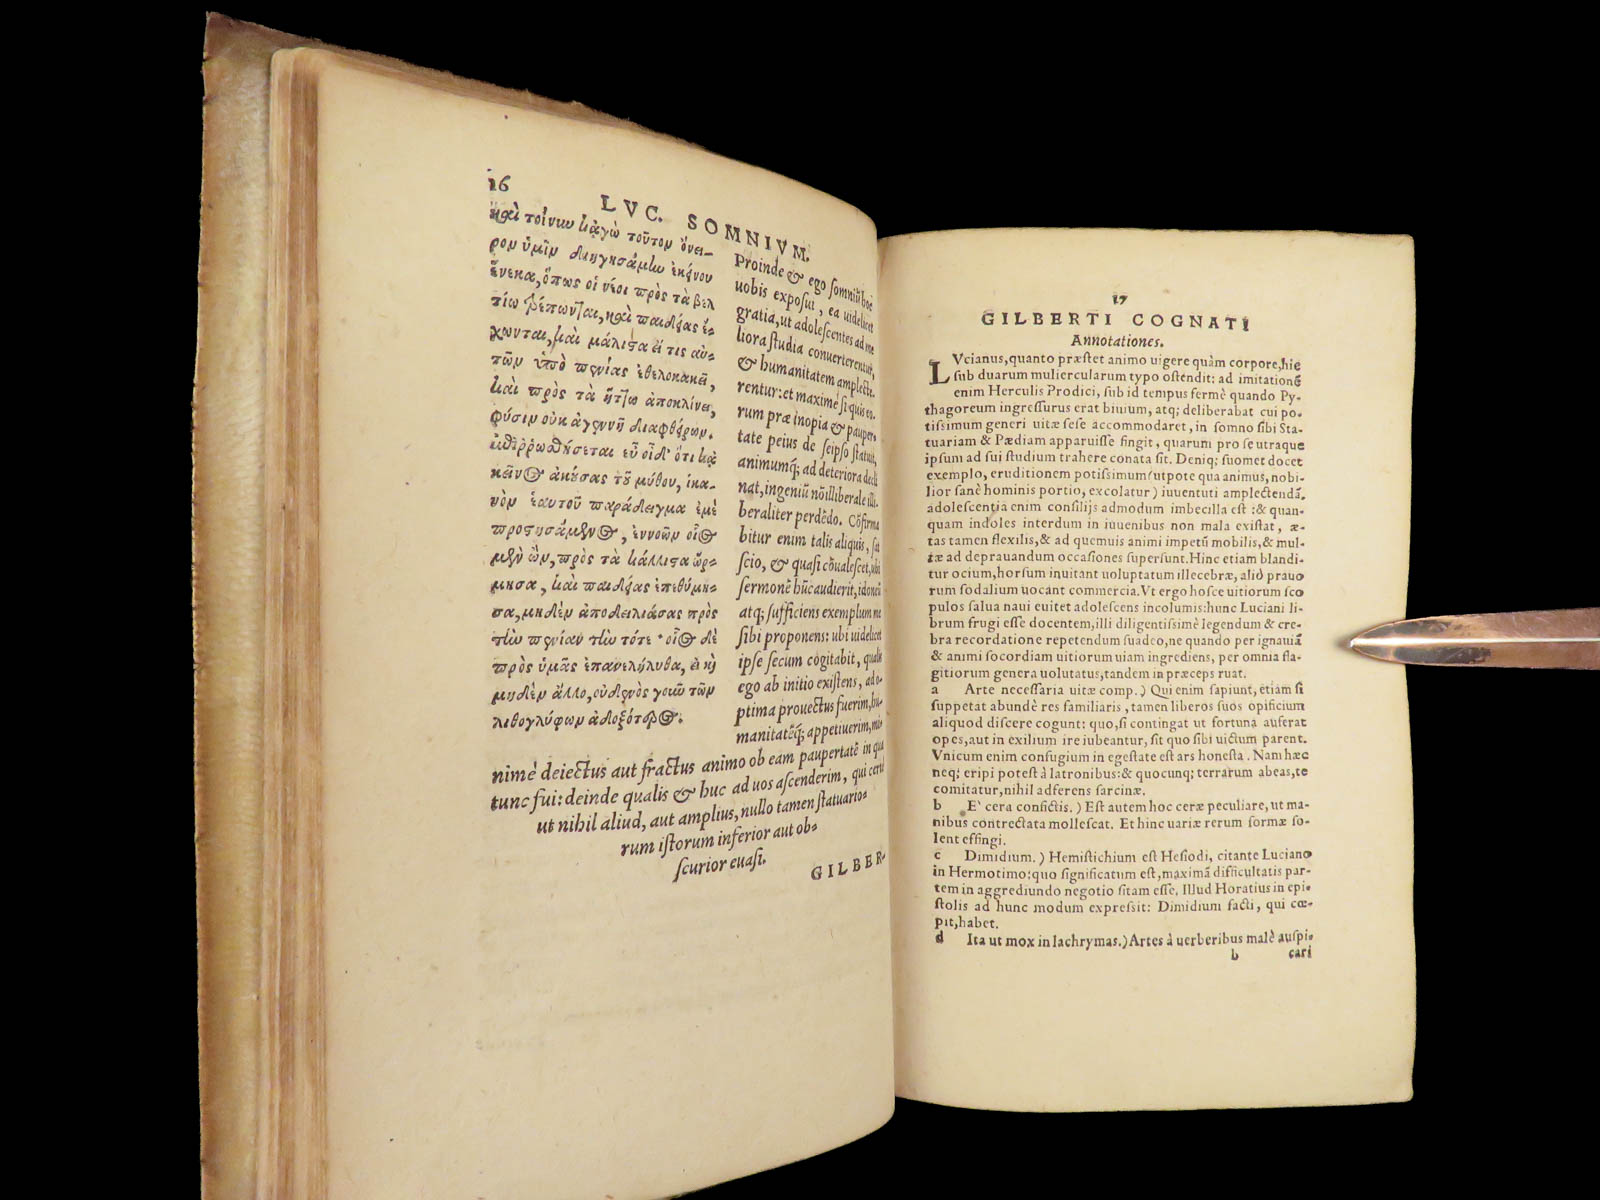 16
LVC. SOMNIVM.
καὶ τοίνυν κἀγὼ τοῦτον ὄνει-
ρον ὑμῖν διηγησάμην ἐκείνου
ἕνεκα, ὅπως οἱ νέοι πρὸς τὰ βελ
τίω τρέπωνται, καὶ παιδείας ἔ-
χωνται, καὶ μάλιστα εἴ τις αὐ-
τῶν ὑπὸ πενίας ἐθελοκακεῖ,
καὶ πρὸς τὰ ἥττω ἀποκλίνει,
φύσιν οὐκ ἀγεννῆ διαφθείρων.
ἐπιρρωσθήσεται εὖ οἶδ' ὅτι κἀ
κεῖνος ἀκούσας τοῦ μύθου, ἱκα-
νὸν ἑαυτοῦ παράδειγμα ἐμὲ
προστησάμενος, ἐννοῶν οἷος
μὲν ὢν, πρὸς τὰ κάλλιστα ὥρ-
μησα, καὶ παιδείας ἐπεθύμη-
σα, μηδὲν ἀποδειλιάσας πρὸς
τὴν πενίαν τὴν τότε· οἷος δὲ
πρὸς ὑμᾶς ἐπανελήλυθα, εἰ καὶ
μηδὲν ἄλλο, οὐδενὸς γοῦν τῶν
λιθογλύφων ἀδοξότερος.
Proinde & ego somniũ hoc
uobis exposui, ea uidelicet
gratia, ut adolescentes ad me
liora studia conuerterentur,
& humanitatem amplecte-
rentur: et maxime si quis eo-
rum præ inopia & pauper-
tate peius de seipso statuit,
animumq; ad deteriora decli
nat, ingeniũ nõ illiberale illi-
beraliter perdẽdo. Cõfirma
bitur enim talis aliquis, sat
scio, & quasi cõualescet, ubi
sermonẽ hũc audierit, idoneũ
atq; sufficiens exemplum me
sibi proponens: ubi uidelicet
ipse secum cogitabit, qualis
ego ab initio existens, ad o-
ptima prouectus fuerim, hu-
manitatẽq; appetiuerim, mi-
nimè deiectus aut fractus animo ob eam paupertatẽ in qua
tunc fui: deinde qualis & huc ad uos ascenderim, qui certè
ut nihil aliud, aut amplius, nullo tamen statuario-
rum istorum inferior aut ob-
scurior euasi.
GILBER-
17
GILBERTI COGNATI
Annotationes.
LVcianus, quanto præstet animo uigere quàm corpore, hic
sub duarum muliercularum typo ostendit: ad imitationẽ
enim Herculis Prodici, sub id tempus fermè quando Py-
thagoreum ingressurus erat biuium, atq; deliberabat cui po-
tissimum generi uitæ sese accommodaret, in somno sibi Sta-
tuariam & Pædiam apparuisse fingit, quarum pro se utraque
ipsum ad sui studium trahere conata sit. Deniq; suomet docet
exemplo, eruditionem potissimum (utpote qua animus, nobi-
lior sanè hominis portio, excolatur) iuuentuti amplectendã.
adolescentia enim consilijs admodum imbecilla est: & quan-
quam indoles interdum in iuuenibus non mala existat, æ-
tas tamen flexilis, & ad quemuis animi impetũ mobilis, & mul-
tæ ad deprauandum occasiones supersunt. Hinc etiam blandi-
tur ocium, horsum inuitant uoluptatum illecebræ, aliò prauo
rum sodalium uocant commercia. Vt ergo hosce uitiorum sco
pulos salua naui euitet adolescens incolumis: hunc Luciani li-
brum frugi esse docentem, illi diligentissimè legendum & cre-
bra recordatione repetendum suadeo, ne quando per ignauiã
& animi socordiam uitiorum uiam ingrediens, per omnia fla-
gitiorum genera uolutatus, tandem in præceps ruat.
a Arte necessaria uitæ comp.) Qui enim sapiunt, etiam si
suppetat abundè res familiaris, tamen liberos suos opificium
aliquod discere cogunt: quo, si contingat ut fortuna auferat
opes, aut in exilium ire iubeantur, sit quo sibi uictum parent.
Vnicum enim confugium in egestate est ars honesta. Nam hæc
neq; eripi potest à latronibus: & quocunq; terrarum abeas, te
comitatur, nihil adferens sarcinæ.
b E' cera confictis.) Est autem hoc ceræ peculiare, ut ma-
nibus contrectata mollescat. Et hinc uariæ rerum formæ so-
lent effingi.
c Dimidium.) Hemistichium est Hesiodi, citante Luciano
in Hermotimo: quo significatum est, maximã difficultatis par-
tem in aggrediundo negotio sitam esse. Illud Horatius in epi-
stolis ad hunc modum expressit: Dimidium facti, qui cœ-
pit, habet.
d Ita ut mox in lachrymas.) Artes à uerberibus malè auspi-
b cari